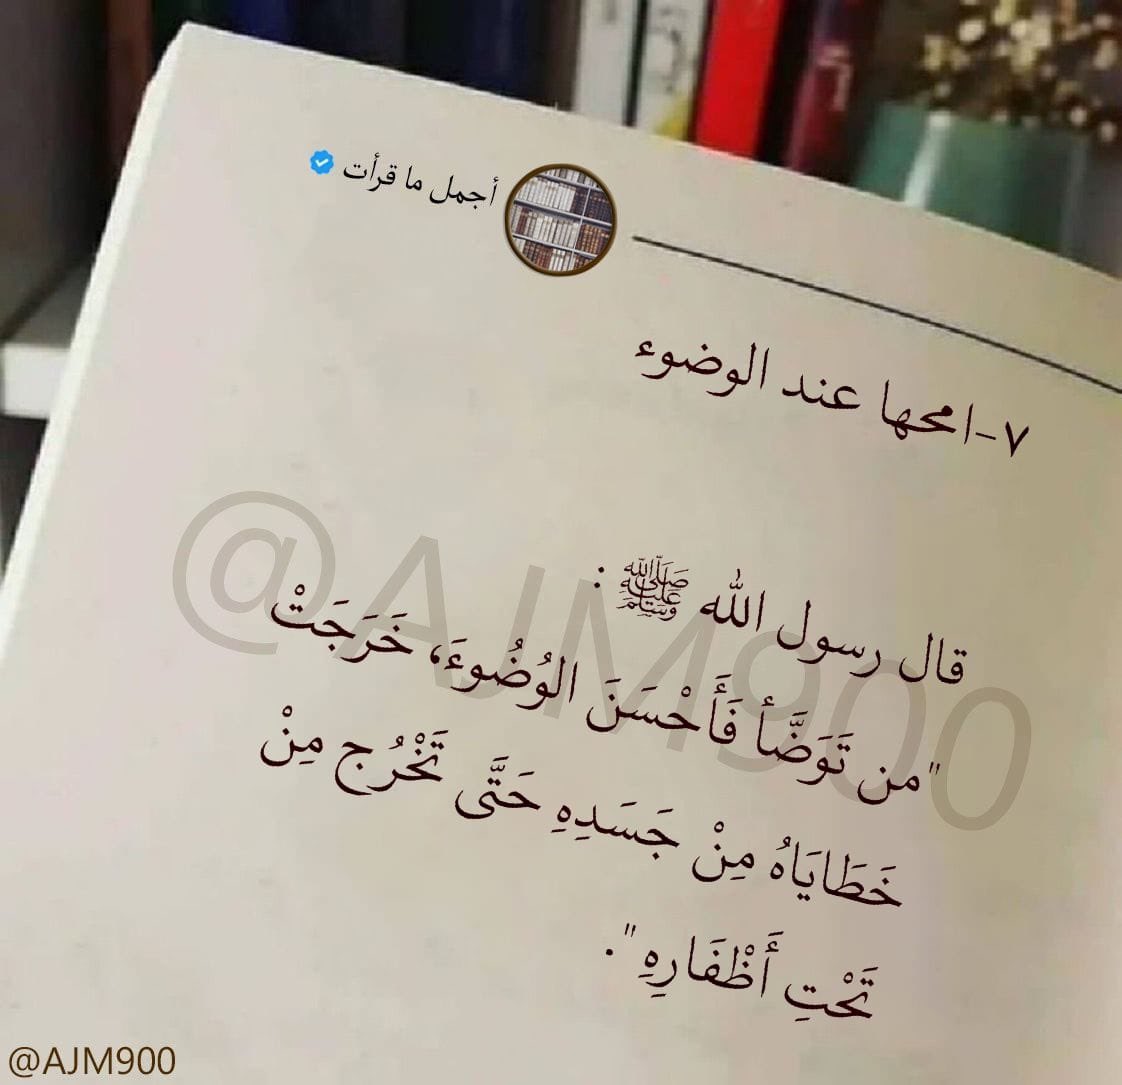 أجمل ما قرأت
٧-امحها عند الوضوء
قال رسول الله ﷺ :
"من تَوَضَّأ فَأَحْسَنَ الوُضُوءَ، خَرَجَتْ
خَطَايَاهُ مِنْ جَسَدِهِ حَتَّى تَخْرُج مِنْ
تَحْتِ أَظْفَارِهِ".
@AJM900
@AJM900